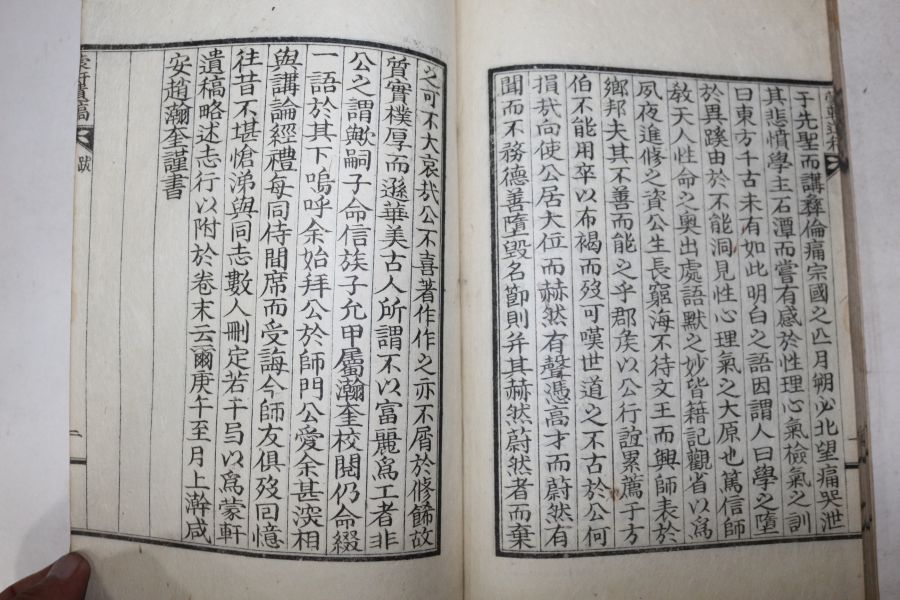 于先聖而講彛倫痛宗國之亾月朔必北望痛哭泄
其悲憤學主石潭而嘗有感於性理心氣檢氣之訓
曰東方千古未有如此明白之語因謂人曰學之墮
於異蹊由於不能洞見性心理氣之大原也篤信師
敎天人性命之奧出處語默之妙皆籍記觀省以爲
夙夜進修之資公生長窮海不待文王而興師表於
鄕邦夫其不善而能之乎郡矦以公行誼累薦于方
伯不能用卒以布褐而歿可嘆世道之不古於公何
損㢤向使公居大位而赫然有聲憑高才而蔚然有
聞而不務德善墮毁名節則并其赫然蔚然者而棄
之可不大哀㢤公不喜著作作之亦不屑於修餙故
質實樸厚而遜華美古人所謂不以富麗爲工者非
公之謂歟嗣子命信族子允甲屬瀚奎校閱仍命綴
一語於其下嗚呼余始拜公於師門公愛余甚深相
與講論經禮每同侍間席而受誨今師友俱歿回憶
往昔不堪愴涕與同志數人刪定若干㢧以爲蒙軒
遺稿略述志行以附於卷末云爾庚午至月上澣咸
安趙瀚奎謹書
跋
二